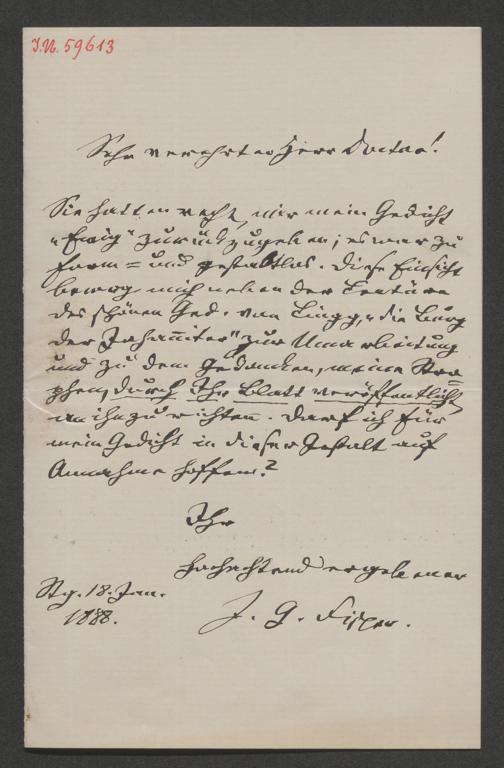 J.N. 59613
Sehr verehrter Herr Doctor!
Sie hatten recht, mir mein Gedicht
„Ewig" zurückzugeben; es war zu
form- und gestaltlos. Diese Einsicht
bewog mich neben der Lectüre
des schönen Ged. von Lingg, „die Burg
der Johanniter" zur Umarbeitung
und zu dem Gedanken, meine Stro=
phen, durch Ihr Blatt veröffentlicht,
an ihn zu richten. Darf ich für
mein Gedicht in dieser Gestalt auf
Annahme hoffen?
Ihr
hochachtend ergebener
Stg. 18. Jan.
1888.
J. G. Fischer.